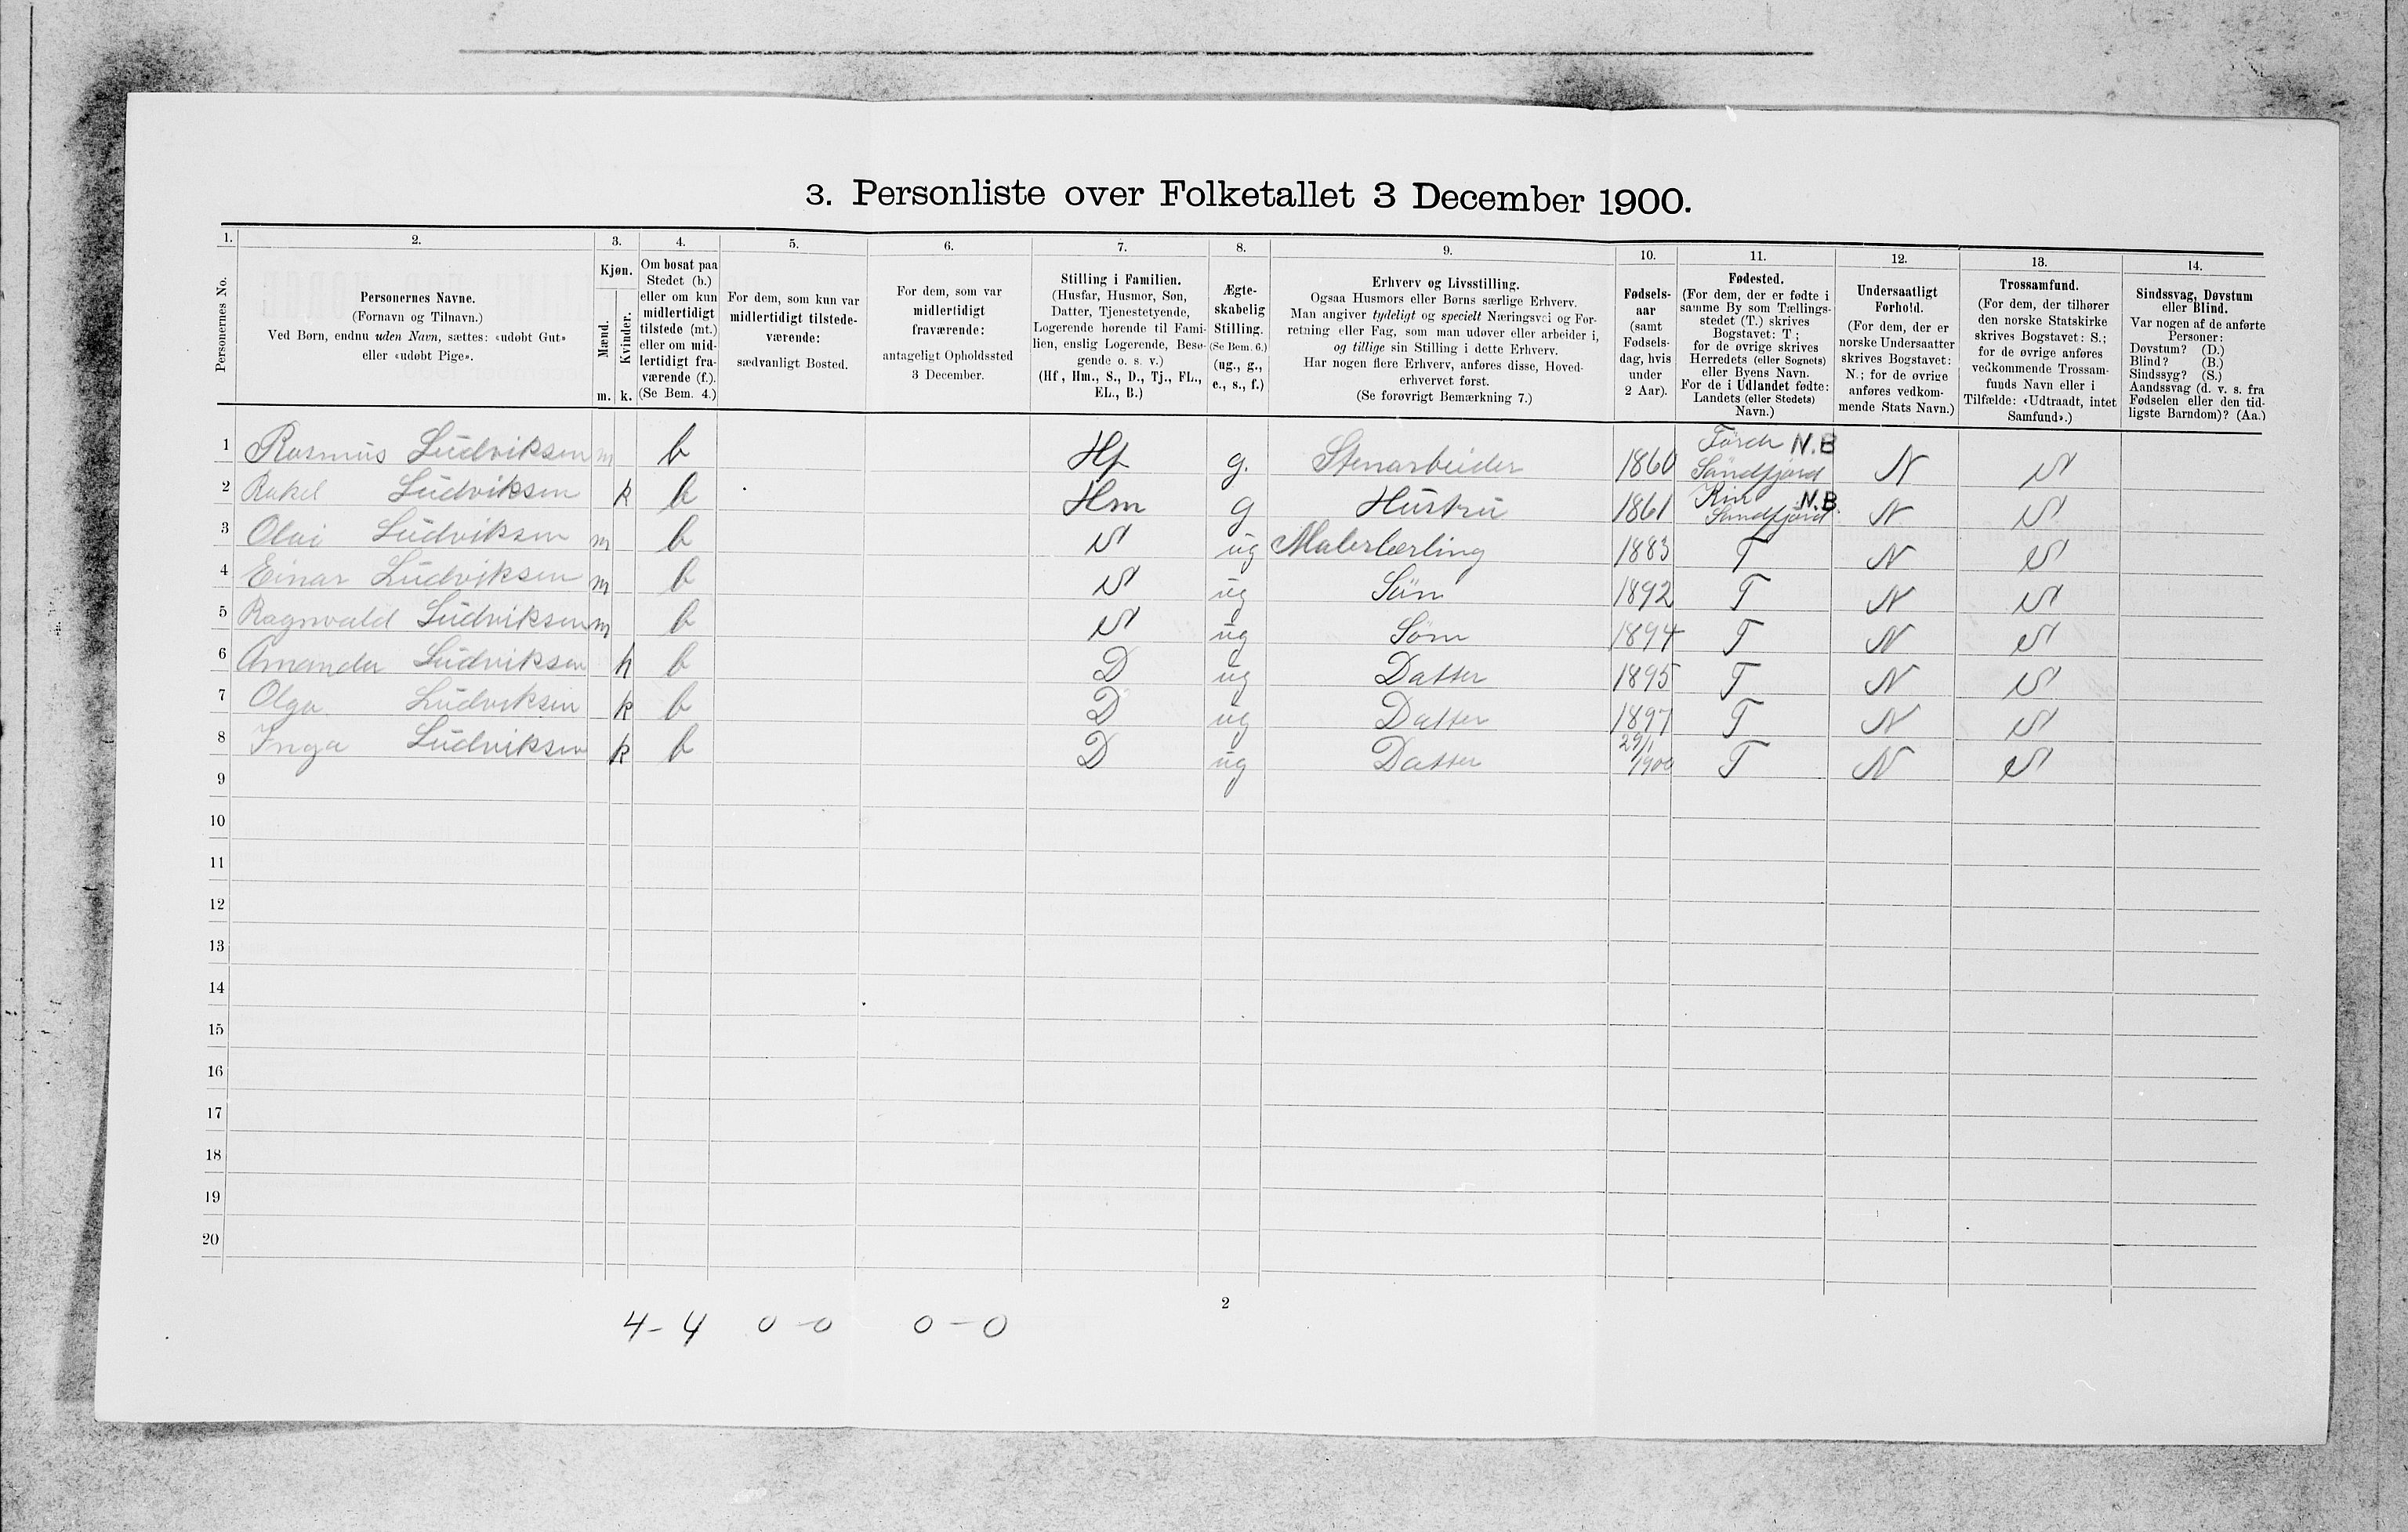 3. Personliste over Folketallet 3 December 1900.
1. 2. 3. 4. 5. 6. 7. 8. 9. 10. 11. 12. 13. 14.
Personernes No.
Personernes Navne.
(Fornavn og Tilnavn.)
Ved Børn, endnu uden Navn, sættes: «udøbt Gut»
eller «udøbt Pige».
Kjøn.
Mænd.
Kvinder.
m. k.
Om bosat paa
Stedet (b.)
eller om kun
midlertidigt
tilstede (mt.)
eller om mid-
lertidigt fra-
værende (f.).
(Se Bem. 4.)
For dem, som kun var
midlertidigt tilstede-
værende:
sædvanligt Bosted.
For dem, som var
midlertidigt
fraværende:
antageligt Opholdssted
3 December.
Stilling i Familien.
(Husfar, Husmor, Søn,
Datter, Tjenestetyende,
Logerende hørende til Fami-
lien, enslig Logerende, Besø-
gende o. s. v.)
(Hf, Hm., S., D., Tj., FL.,
EL., B.)
Ægte-
skabelig
Stilling.
(Se Bem. 6.)
(ug., g.,
e., s., f.)
Erhverv og Livsstilling.
Ogsaa Husmors eller Børns særlige Erhverv.
Man angiver tydeligt og specielt Næringsvei og For-
retning eller Fag, som man udøver eller arbeider i,
og tillige sin Stilling i dette Erhverv.
Har nogen flere Erhverv, anføres disse, Hoved-
erhvervet først.
(Se forøvrigt Bemærkning 7.)
Fødsels-
aar
(samt
Fødsels-
dag, hvis
under
2 Aar).
Fødested.
(For dem, der er fødte i
samme By som Tællings-
stedet (T.) skrives
Bogstavet: T;
for de øvrige skrives
Herredets (eller Sognets)
eller Byens Navn.
For de i Udlandet fødte:
Landets (eller Stedets)
Navn.)
Undersaatligt
Forhold.
(For dem, der er
norske Undersaatter
skrives Bogstavet:
N.; for de øvrige
anføres vedkom-
mende Stats Navn.)
Trossamfund.
(For dem, der tilhører
den norske Statskirke
skrives Bogstavet: S.;
for de øvrige anføres
vedkommende Trossam-
funds Navn eller i
Tilfælde: «Udtraadt, intet
Samfund».)
Sindssvag, Døvstum
eller Blind.
Var nogen af de anførte
Personer:
Døvstum? (D.)
Blind? (B.)
Sindssyg? (S.)
Aandssvag (d. v. s. fra
Fødselen eller den tid-
ligste Barndom)? (Aa.)
1 Rasmus Ludviksen m b Hf g. Stenarbeider 1860 Førde N.B Søndfjord N S
2 Rakel Ludviksen k b Hm g Hustru 1861 Kin N.B. Søndfjord N S
3 Olai Ludviksen m b S ug Malerlærling 1883 T N S
4 Einar Ludviksen m b S ug Søn 1892 T N S
5 Ragnvald Ludviksen m b S ug Søn 1894 T N S
6 Amanda Ludviksen k b D ug Datter 1895 T N S
7 Olga Ludviksen k b D ug Datter 1897 T N S
8 Inga Ludviksen k b D ug Datter 29/1 1900 T N S
9
10
11
12
13
14
15
16
17
18
19
20
2
4-4 0-0 0-0